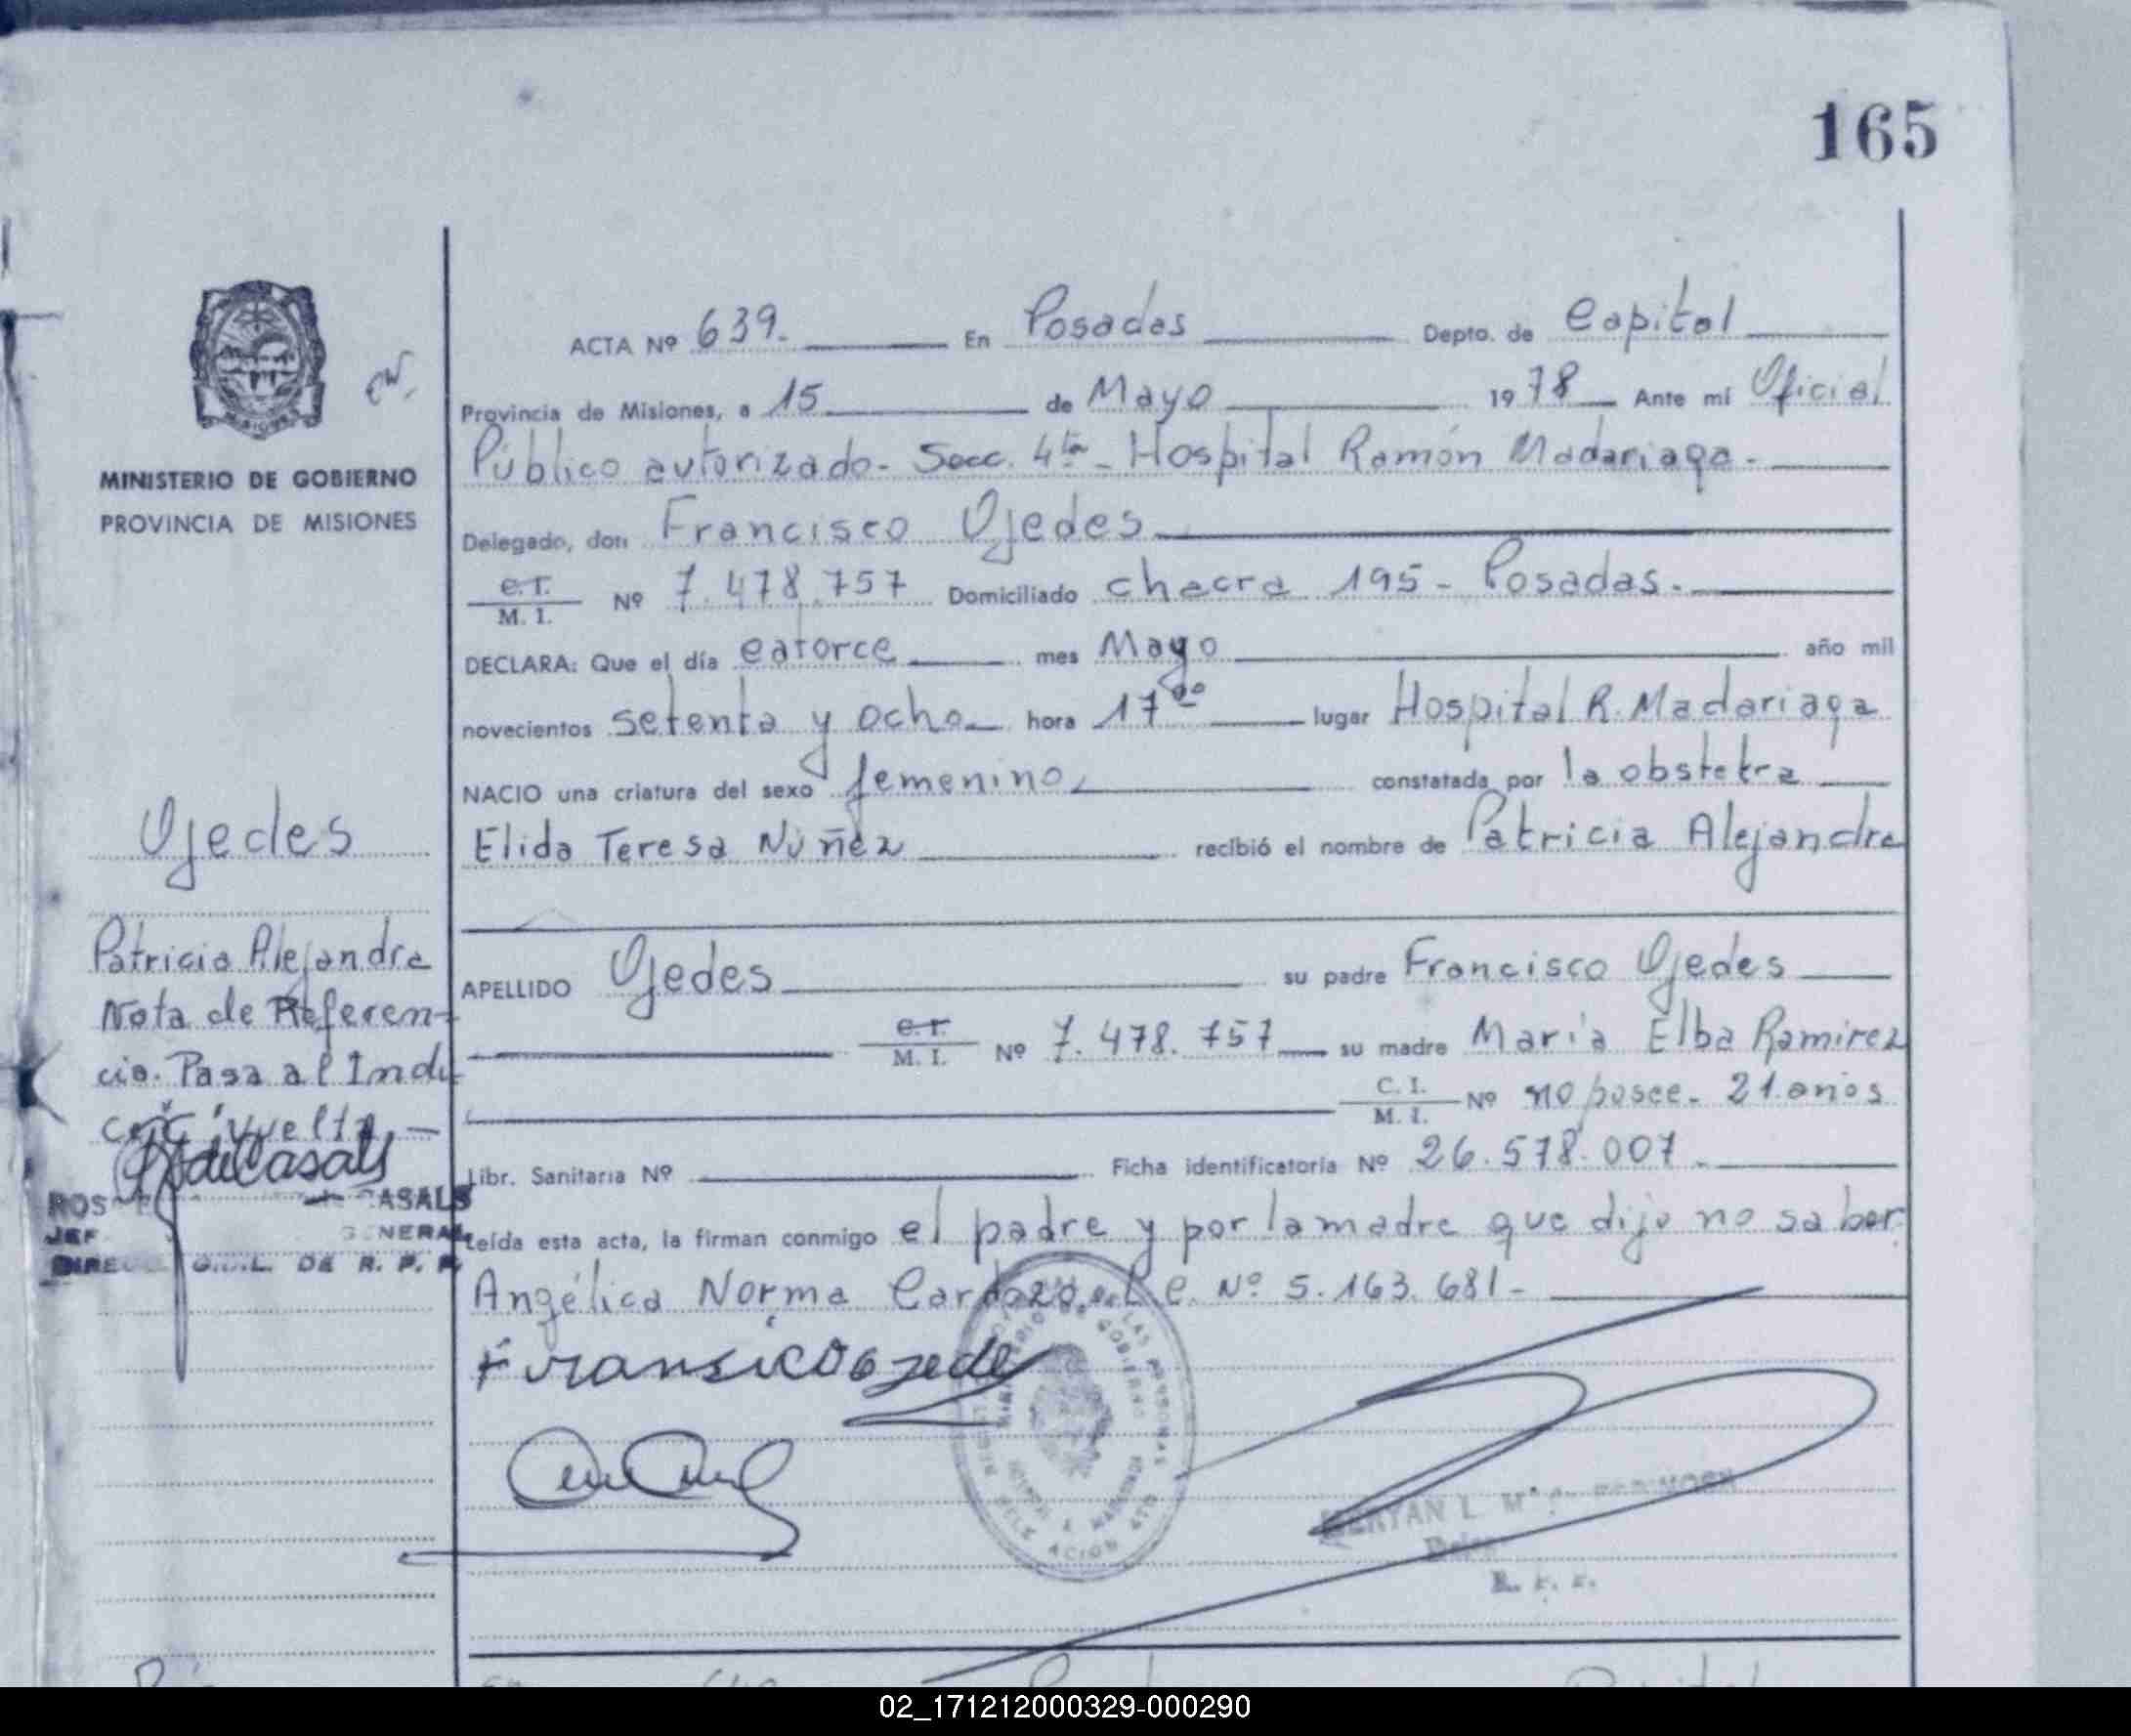 165
ACTA Nº 639. En Posadas Depto. de Capital
Provincia de Misiones, a 15 de Mayo 1978 Ante mí Oficial
Público autorizado. Secc. 4ta - Hospital Ramón Madariaga.
Delegado, don Francisco Ojedes
C.I. M. I. Nº 7.478.757 Domiciliado chacra 195 - Posadas.
DECLARA: Que el día catorce mes Mayo año mil
novecientos setenta y ocho hora 17 lugar Hospital R. Madariaga
NACIO una criatura del sexo femenino, constatada por la obstetra
Elida Teresa Núñez recibió el nombre de Patricia Alejandra
APELLIDO Ojedes su padre Francisco Ojedes
C.I. M. I. Nº 7.478.757 su madre María Elba Ramirez
C. I. M. I. Nº no posee. 21 años
Libr. Sanitaria Nº Ficha identificatoria Nº 26.578.007
Leída esta acta, la firman conmigo el padre y por la madre que dijo no saber
Angélica Norma Cardozo. L.C. Nº 5.163.681-
MINISTERIO DE GOBIERNO
PROVINCIA DE MISIONES
Ojedes
Patricia Alejandra
Nota de Referen-
cia. Pasa al Indi
ce "C" vuelta -
de Casals
CASALS
GENERAL
DE R. P. P.
02_171212000329-000290